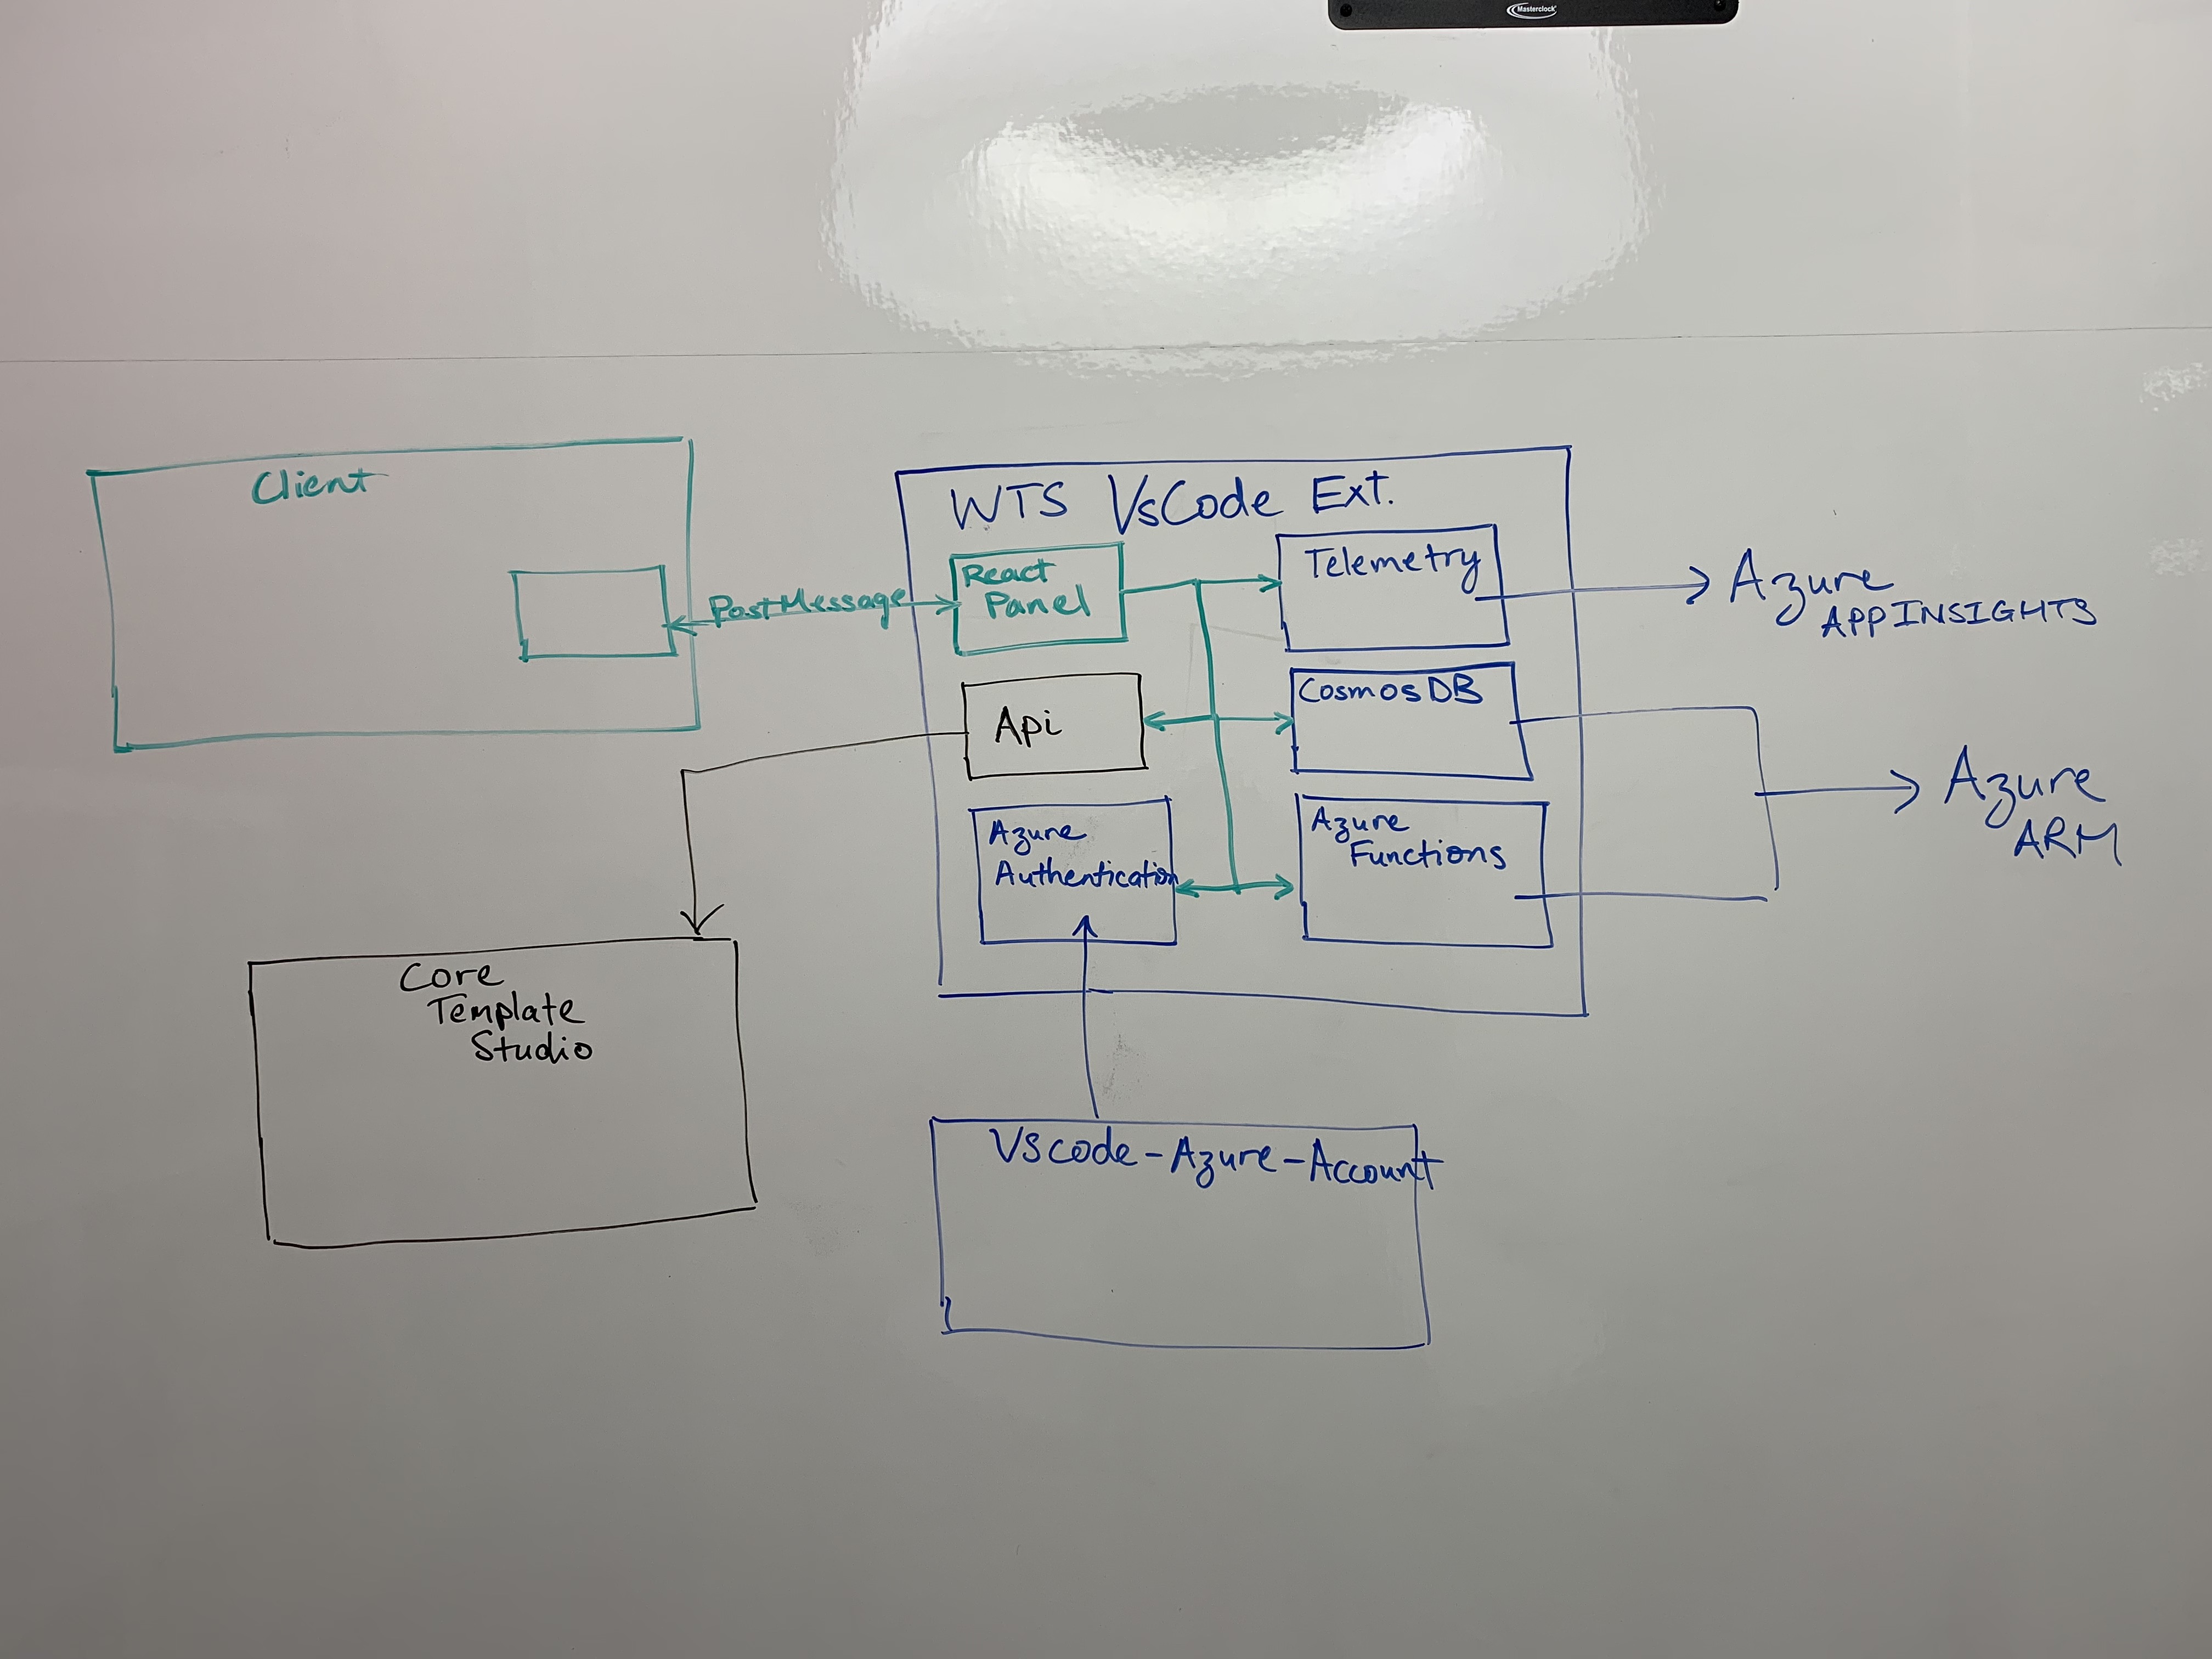 Masterclock
Client
WTS VsCode Ext.
React
Panel
Telemetry
PostMessage
Azure
APPINSIGHTS
Api
CosmosDB
Azure
ARM
Azure
Authentication
Azure
Functions
Core
Template
Studio
VScode-Azure-Account